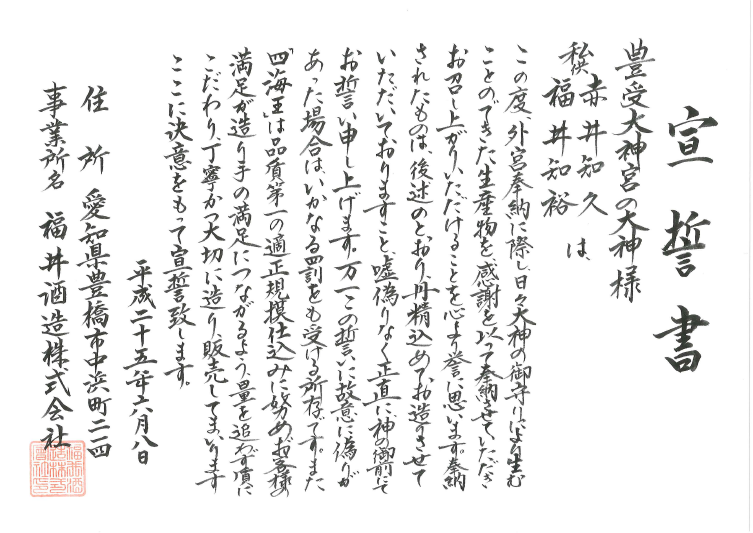 宣誓書
豊受大神宮の大神様
私共
赤井知久
福井知裕
は、
この度、外宮奉納に際し、日々大神の御守りにより生む
ことのできた生産物を、感謝を以て奉納させていただき
お召し上がりいただけることを心より誉に思います。奉納
されたものは、後述のとおり、丹精込めてお造りさせて
いただいておりますこと、嘘偽りなく正直に、神の御前にて
お誓い申し上げます。万一この誓いに故意に偽りが
あった場合は、いかなる罰をも受ける所存です。また
「四海王」は品質第一の適正規模仕込みに努めお客様の
満足が造り手の満足につながるよう、量を追わず頃に
こだわり、丁寧かつ大切に造り、販売してまいります
ここに決意をもって宣誓致します。
平成二十五年六月八日
住所 愛知県豊橋市中浜町二一四
事業所名 福井酒造株式会社